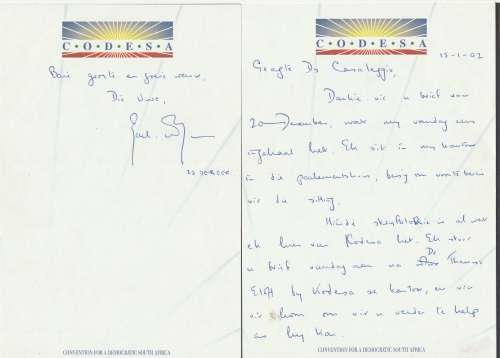 CODESA
Baie groete en goeie wense,
Die Uwe,
CONVENTION FOR A DEMOCRATIC SOUTH AFRICA
CODESA
15-1-92
Geagte Dr Casaleggio,
Dankie vir u brief van
20 Desember, wat my vandag
ingehaal het. Ek sit in my kantoor
in die parlementshuis, besig om voor te berei
vir die sitting.
Hierdie is al wat
ek hier van Kodesa het. Ek stuur
u brief vandag aan na Dr Theuns
Eloff by Kodesa se kantoor, en vra
vir hom om vir u verder te help
as hy kan.
CONVENTION FOR A DEMOCRATIC SOUTH AFRICA